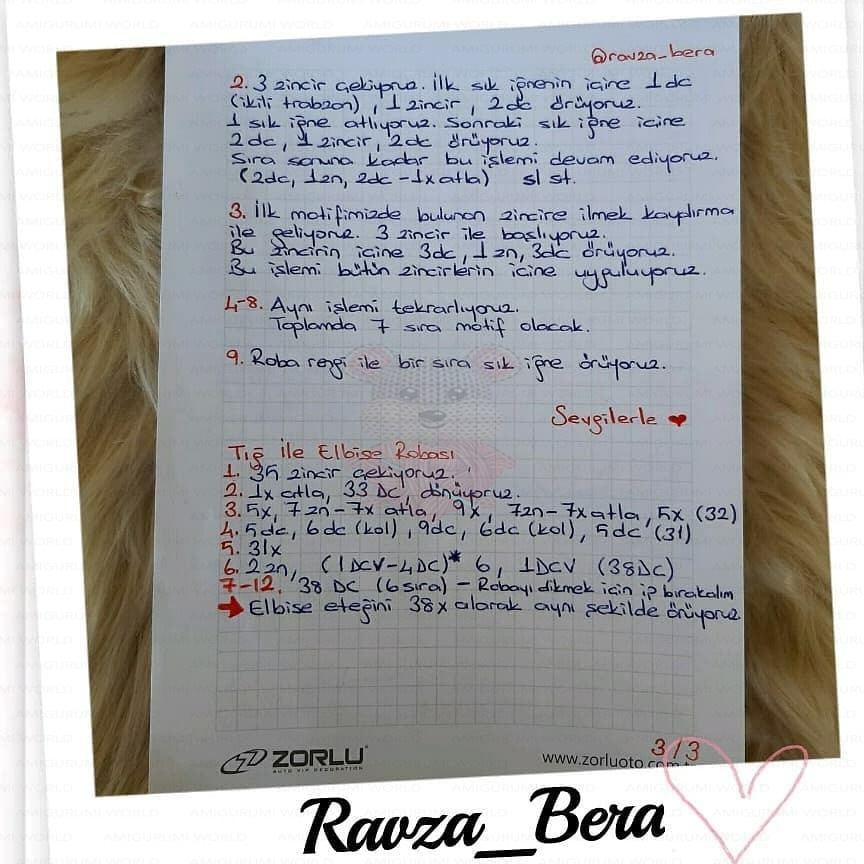 @ravza_bera
2. 3 zincir çekiyoruz. İlk sık iğnenin içine 1 dc
(ikili trabzan), 1 zincir, 2 dc örüyoruz.
1 sık iğne atlıyoruz. Sonraki sık iğne içine
2dc, 1 zincir, 2dc örüyoruz.
Sıra sonuna kadar bu işlemi devam ediyoruz.
(2dc, 1zn, 2dc - 1x atla) sl st.
3. İlk motifimizde bulunan zincire ilmek kaydırma
ile geliyoruz. 3 zincir ile başlıyoruz.
Bu zincirin içine 3dc, 1 zn, 3dc örüyoruz.
Bu işlemi bütün zincirlerin içine uyguluyoruz.
4-8. Aynı işlemi tekrarlıyoruz.
Toplamda 7 sıra motif olacak.
9. Roba rengi ile bir sıra sık iğne örüyoruz.
Sevgilerle ❤
Tığ İle Elbise Robası
1. 35 zincir çekiyoruz.
2. 1x atla, 33 DC, dönüyoruz.
3. 5x, 7zn-7x atla, 9x, 7zn-7x atla, 5x (32)
4. 5dc, 6dc (kol), 9dc, 6dc (kol), 5dc (31)
5. 31x
6. 2zn, (1DCV-4DC)* 6, 1DCV (38DC)
7-12. 38 DC (6 sıra) - Robayı dikmek için ip bırakalım
→ Elbise eteğini 38x alarak aynı şekilde örüyoruz.
ZORLU
AUTO VIP DECORATION
www.zorluoto.com.t
3/3
Ravza_Bera